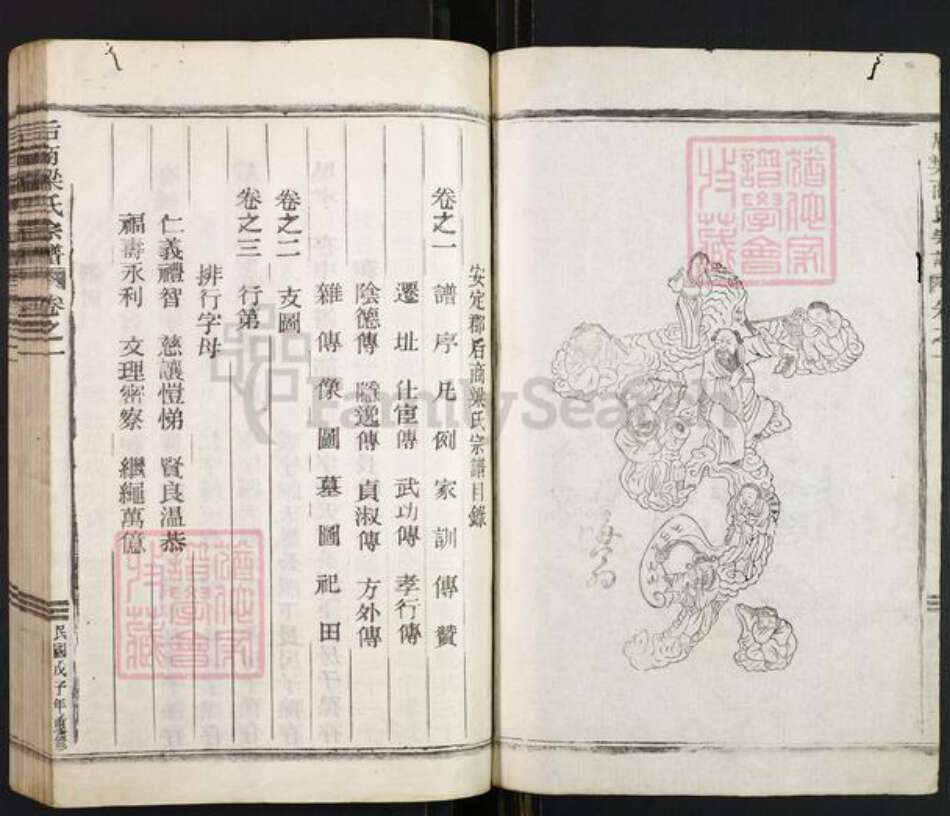 安定郡后商梁氏宗譜目錄
卷之一 譜序 凡例 家訓 傳贊
遷址 仕宦傳 武功傳 孝行傳
陰德傳 隱逸傳 貞淑傳 方外傳
雜傳 像圖 墓圖 祀田
卷之二 支圖
卷之三 行第
排行字母
仁義禮智 慈讓愷悌 賢良溫恭
福壽永利 文理密察 繼繩萬億
后商梁氏宗譜 卷之一
民國戊子年重修
猶他家
譜學會
收藏
猶他家
譜學會
收藏
FamilySearch